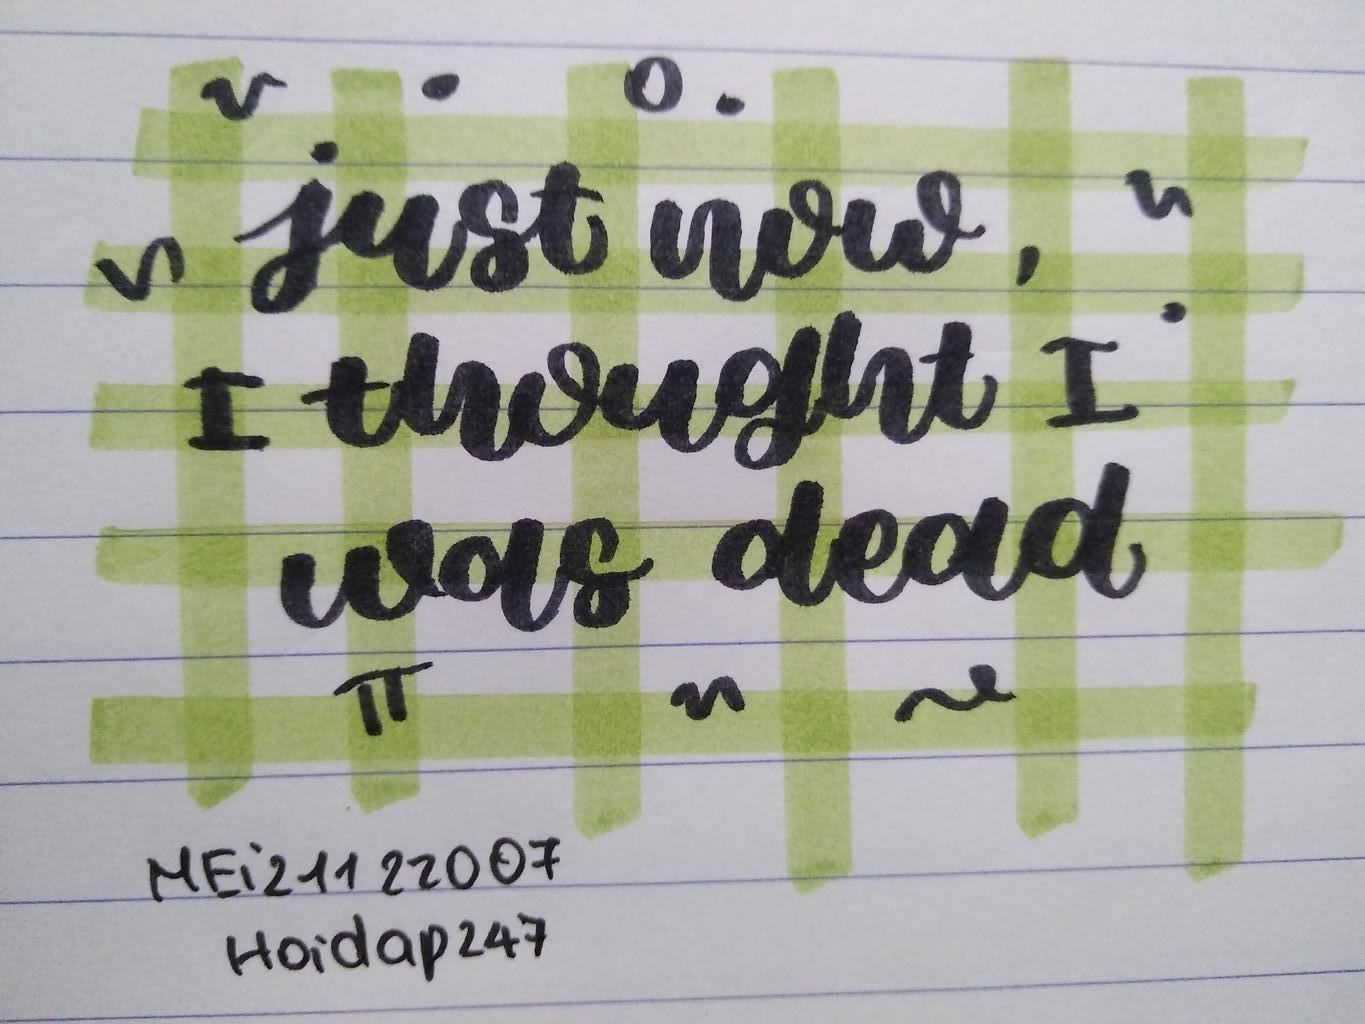 just now,
I thought I
was dead
MEi21122007
Hoidap247